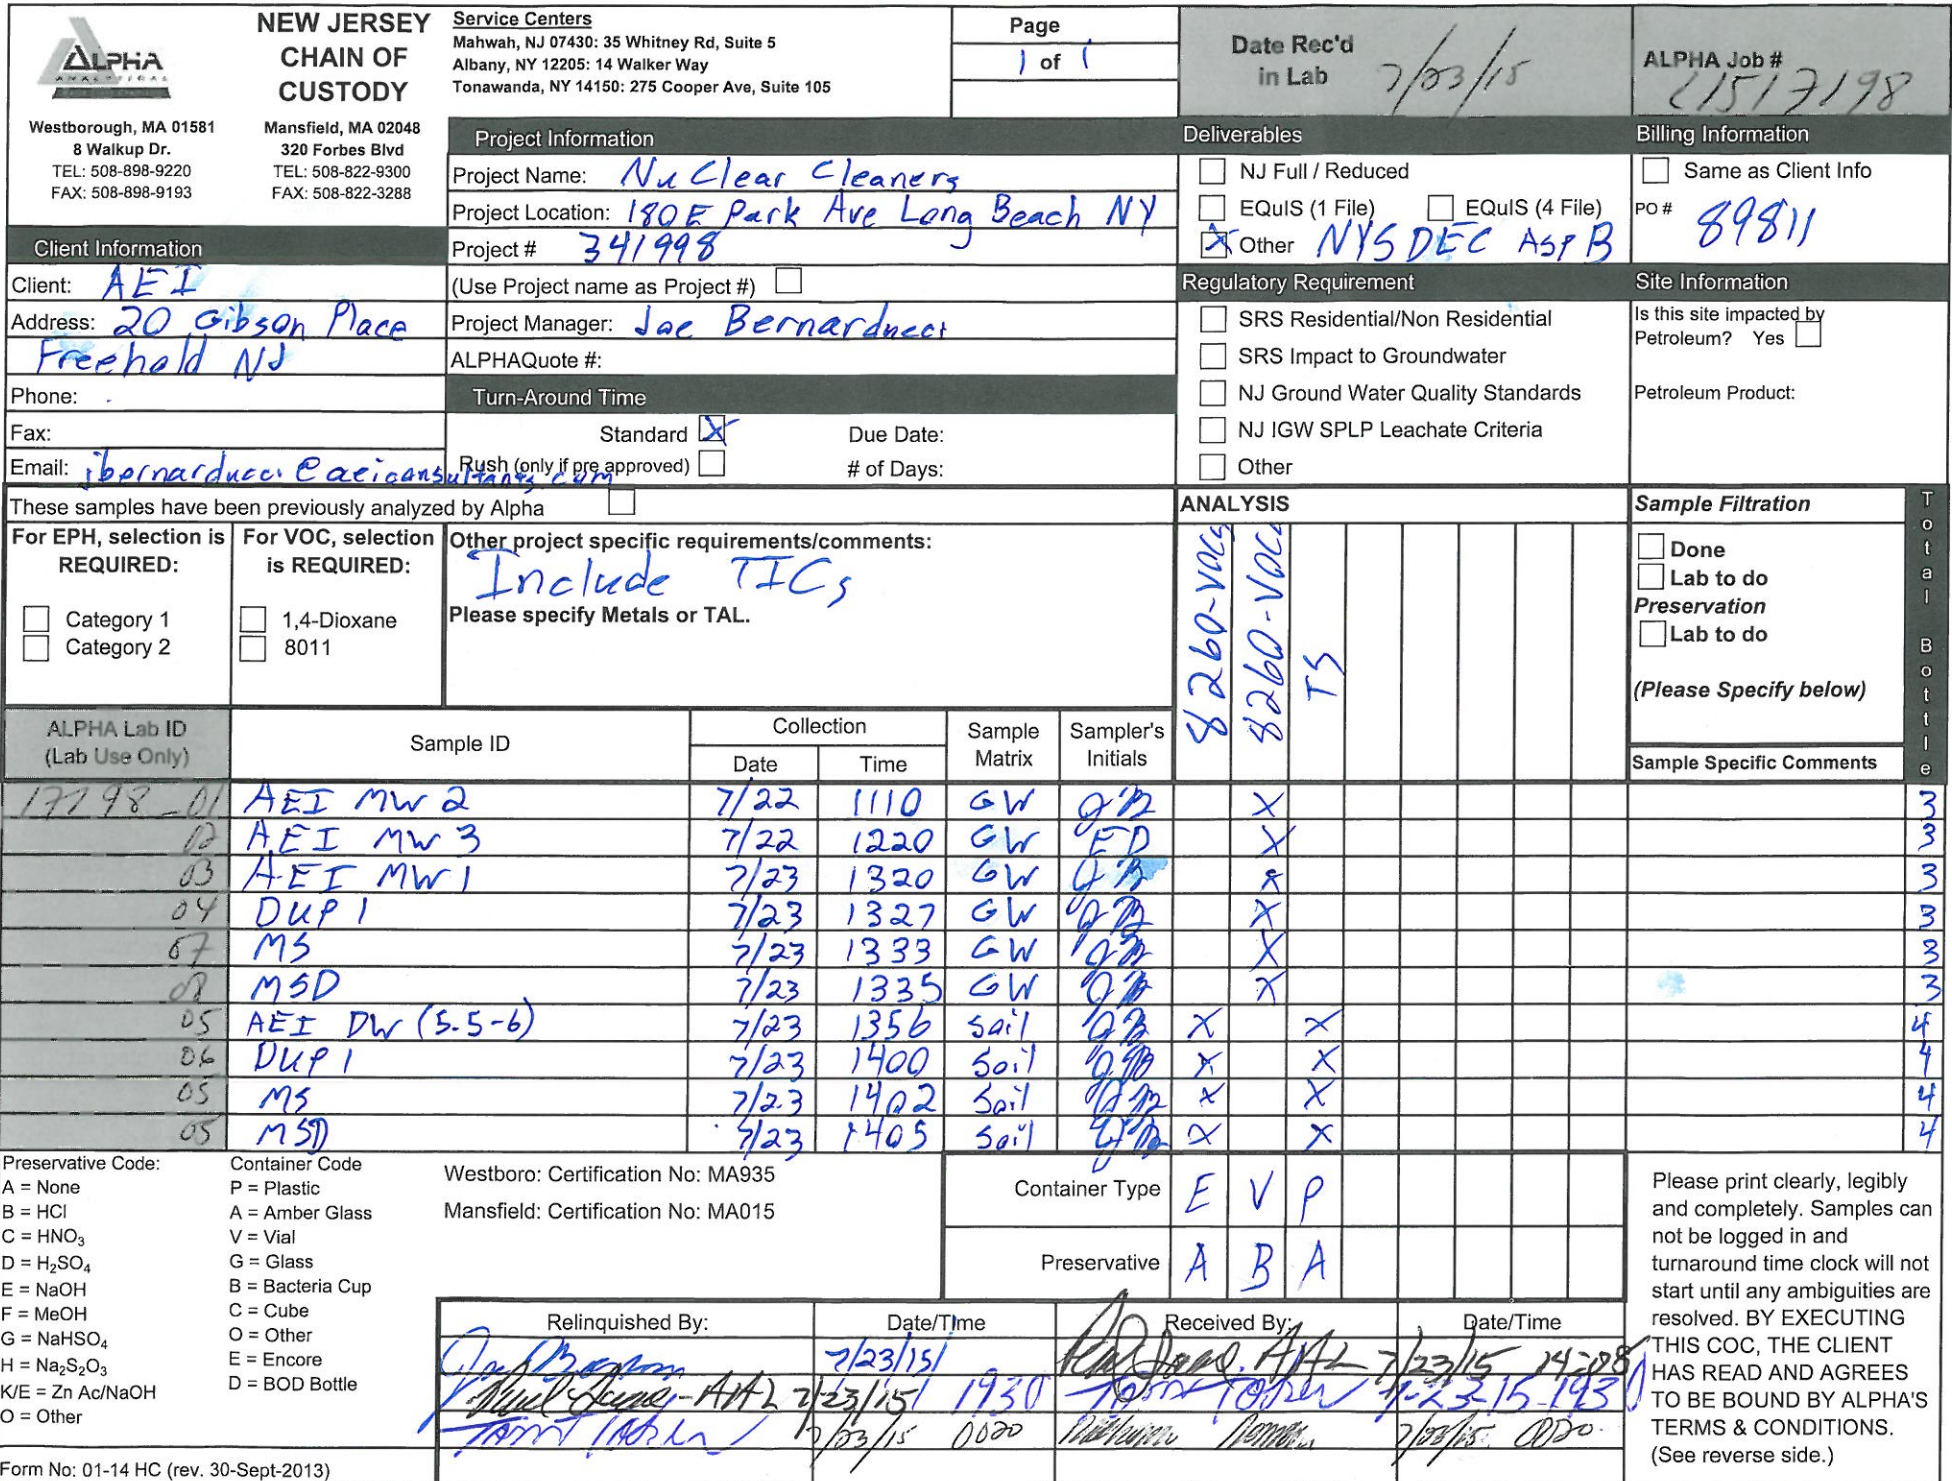 ALPHA
ANALYTICAL
NEW JERSEY
CHAIN OF
CUSTODY
Westborough, MA 01581
8 Walkup Dr.
TEL: 508-898-9220
FAX: 508-898-9193
Mansfield, MA 02048
320 Forbes Blvd
TEL: 508-822-9300
FAX: 508-822-3288
Service Centers
Mahwah, NJ 07430: 35 Whitney Rd, Suite 5
Albany, NY 12205: 14 Walker Way
Tonawanda, NY 14150: 275 Cooper Ave, Suite 105
Page
1 of 1
Date Rec'd
in Lab 7/23/15
ALPHA Job #
L1517198
Client Information
Client: AEI
Address: 20 Gibson Place
Freehold NJ
Phone:
Fax:
Email: jbernarducci@aeiconsultants.com
Project Information
Project Name: Nu Clear Cleaners
Project Location: 180 E Park Ave Long Beach NY
Project # 341998
(Use Project name as Project #)
Project Manager: Joe Bernarducci
ALPHAQuote #:
Turn-Around Time
Standard X Due Date:
Rush (only if pre approved) # of Days:
Deliverables
NJ Full / Reduced
EQuIS (1 File) EQuIS (4 File)
X Other NYSDEC ASP B
Regulatory Requirement
SRS Residential/Non Residential
SRS Impact to Groundwater
NJ Ground Water Quality Standards
NJ IGW SPLP Leachate Criteria
Other
Billing Information
Same as Client Info
PO # 89811
Site Information
Is this site impacted by
Petroleum? Yes
Petroleum Product:
These samples have been previously analyzed by Alpha
For EPH, selection is
REQUIRED:
Category 1
Category 2
For VOC, selection
is REQUIRED:
1,4-Dioxane
8011
Other project specific requirements/comments:
Include TICs
Please specify Metals or TAL.
ANALYSIS
8260-VOCs
8260-VOCs
TS
Sample Filtration
Done
Lab to do
Preservation
Lab to do
(Please Specify below)
Total Bottle
ALPHA Lab ID
(Lab Use Only)
Sample ID
Collection
Date Time
Sample
Matrix
Sampler's
Initials
Sample Specific Comments
17198-01 AEI MW2 7/22 1110 GW JB X 3
02 AEI MW3 7/22 1220 GW ED X 3
03 AEI MW1 7/23 1320 GW JB X 3
04 DUP 1 7/23 1327 GW JB X 3
07 MS 7/23 1333 GW JB X 3
08 MSD 7/23 1335 GW JB X 3
05 AEI DW (5.5-6) 7/23 1356 Soil JB X X 4
06 DUP 1 7/23 1400 Soil JB X X 4
05 MS 7/23 1402 Soil JB X X 4
05 MSD 7/23 1405 Soil JB X X 4
Preservative Code:
A = None
B = HCl
C = HNO3
D = H2SO4
E = NaOH
F = MeOH
G = NaHSO4
H = Na2S2O3
K/E = Zn Ac/NaOH
O = Other
Container Code
P = Plastic
A = Amber Glass
V = Vial
G = Glass
B = Bacteria Cup
C = Cube
O = Other
E = Encore
D = BOD Bottle
Westboro: Certification No: MA935
Mansfield: Certification No: MA015
Container Type E V P
Preservative A B A
Relinquished By: Date/Time Received By: Date/Time
7/23/15 AAL 7/23/15 14:08
-AAL 7/23/15 1930 7-23-15-1930
7/23/15 0020 7/23/15 0020
Please print clearly, legibly
and completely. Samples can
not be logged in and
turnaround time clock will not
start until any ambiguities are
resolved. BY EXECUTING
THIS COC, THE CLIENT
HAS READ AND AGREES
TO BE BOUND BY ALPHA'S
TERMS & CONDITIONS.
(See reverse side.)
Form No: 01-14 HC (rev. 30-Sept-2013)